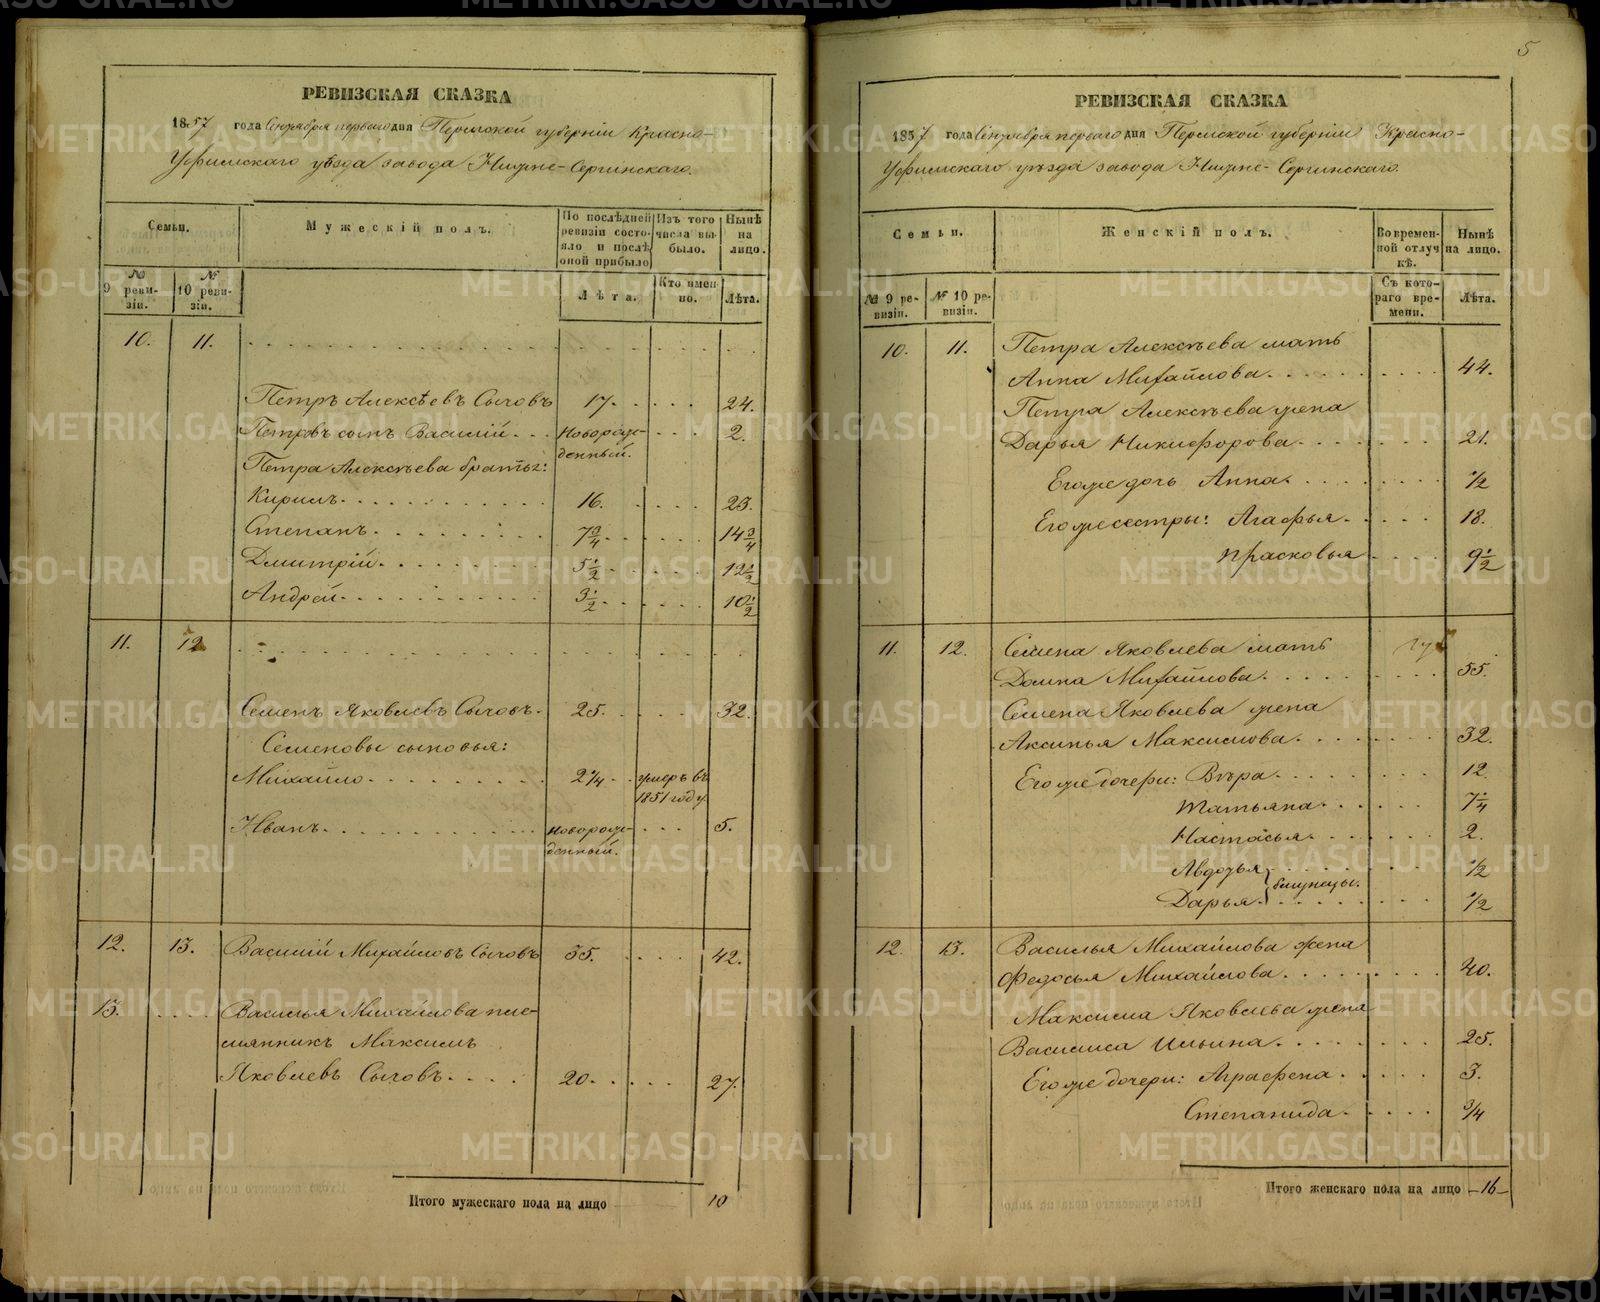 РЕВИЗСКАЯ СКАЗКА
1857 года Сентября перваго дня Пермской губерніи Красно-
Уфимскаго уѣзда завода Нижне-Сергинскаго.
Семьи.
Мужескій полъ.
По послѣдней ревизіи состояло и послѣ оной прибыло
Изъ того числа выбыло.
Нынѣ на лицо.
№ 9 ревизіи.
№ 10 ревизіи.
Лѣта.
Кто именно.
Лѣта.
10. 11.
Петръ Алексѣевъ Сычовъ 17. 24.
Петровъ сынъ Василій новорожденный. 2.
Петра Алексѣева братья:
Кирилъ 16. 23.
Степанъ 7 3/4 14 3/4
Дмитрій 5 1/2 12 1/2
Андрей 3 1/2 10 1/2
11. 12.
Семенъ Яковлевъ Сычовъ 25. 32.
Семеновы сыновья:
Михайло 2 1/4 умеръ въ 1851 году
Иванъ новорожденный. 5.
12. 13. Василій Михайловъ Сычовъ 35. 42.
13. Василья Михайлова пле-
мянникъ Максимъ
Яковлевъ Сычовъ 20. 27.
Итого мужескаго пола на лицо 10
5
РЕВИЗСКАЯ СКАЗКА
1857 года Сентября перваго дня Пермской губерніи Красно-
Уфимскаго уѣзда завода Нижне-Сергинскаго.
Семьи.
Женскій полъ.
Во временной отлучкѣ.
Нынѣ на лицо.
№ 9 ревизіи.
№ 10 ревизіи.
Съ котораго времени.
Лѣта.
10. 11. Петра Алексѣева мать
Анна Михайлова 44.
Петра Алексѣева жена
Дарья Никифорова 21.
Его же дочь Анна 1/2
Его же сестры: Агафья 18.
Прасковья 9 1/2
11. 12. Семена Яковлева мать
Домна Михайлова 55.
Семена Яковлева жена
Аксинья Максимова 32.
Его же дочери: Вѣра 12.
Татьяна 7 1/4
Настасья 2.
Авдотья 1/2
близнецы.
Дарья 1/2
12. 13. Василья Михайлова жена
Федосья Михайлова 40.
Максима Яковлева жена
Василиса Ильина 25.
Его же дочери: Аграфена 3.
Степанида 3/4
Итого женскаго пола на лицо 16
METRIKI.GASO-URAL.RU